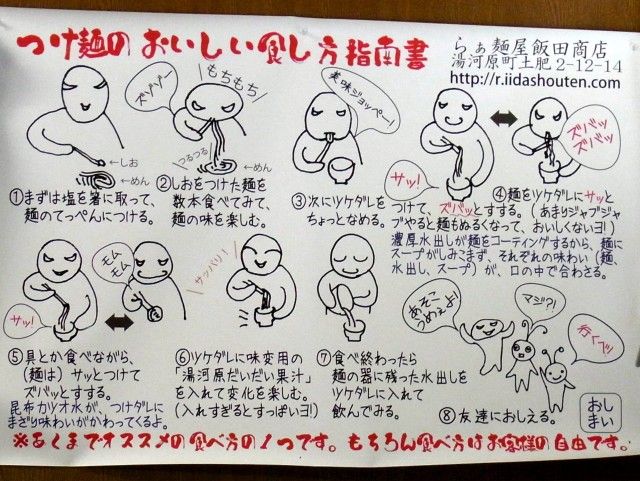 つけ麺のおいしい食し方指南書
らぁ麺屋飯田商店
湯河原町土肥2-12-14
http://r.iidashouten.com
ズゾゾー
しお
めん
①まずは塩を箸に取って、
麺のてっぺんにつける。
もちもち
つるつる
めん
②しおをつけた麺を
数本食べてみて、
麺の味を楽しむ。
美味ジョッペー!
③次にツケダレを
ちょっとなめる。
サッ!
ズバッ
ズバッ
④麺をツケダレにサッと
つけて、ズバッとすする。(あまりジャブジャ
ブやると麺もぬるくなって、おいしくないヨ!)
濃厚水出しが麺をコーティングするから、麺に
スープがしみこまず、それぞれの味わい(麺、
水出し、スープ)が、口の中で合わさる。
サッ!
モム
モム
⑤具とか食べながら、
(麺は)サッとつけて
ズバッとすする。
昆布カツオ水が、つけダレに
まざり味わいがかわってくるよ。
サッパリ
⑥ツケダレに味変用の
「湯河原だいだい果汁」
を入れて変化を楽しむ。
(入れすぎるとすっぱいヨ!)
⑦食べ終わったら
麺の器に残った水出しを
ツケダレに入れて
飲んでみる。
あそこ
うめぇよ!
マジ?!
行くべッ
⑧友達におしえる。
おしまい
※あくまでオススメの食べ方の1つです。もちろん食べ方はお客様の自由です。